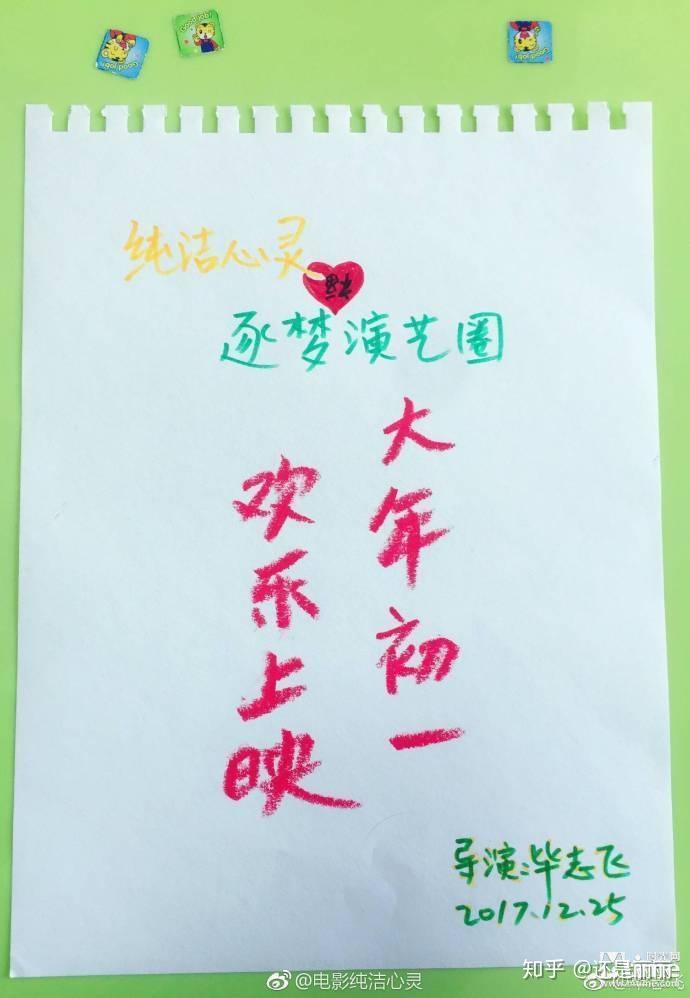 Good job!
纯洁心灵
逐梦演艺圈
大年初一
欢乐上映
导演:毕志飞
2017.12.25
@电影纯洁心灵
知乎 @还是丽丽